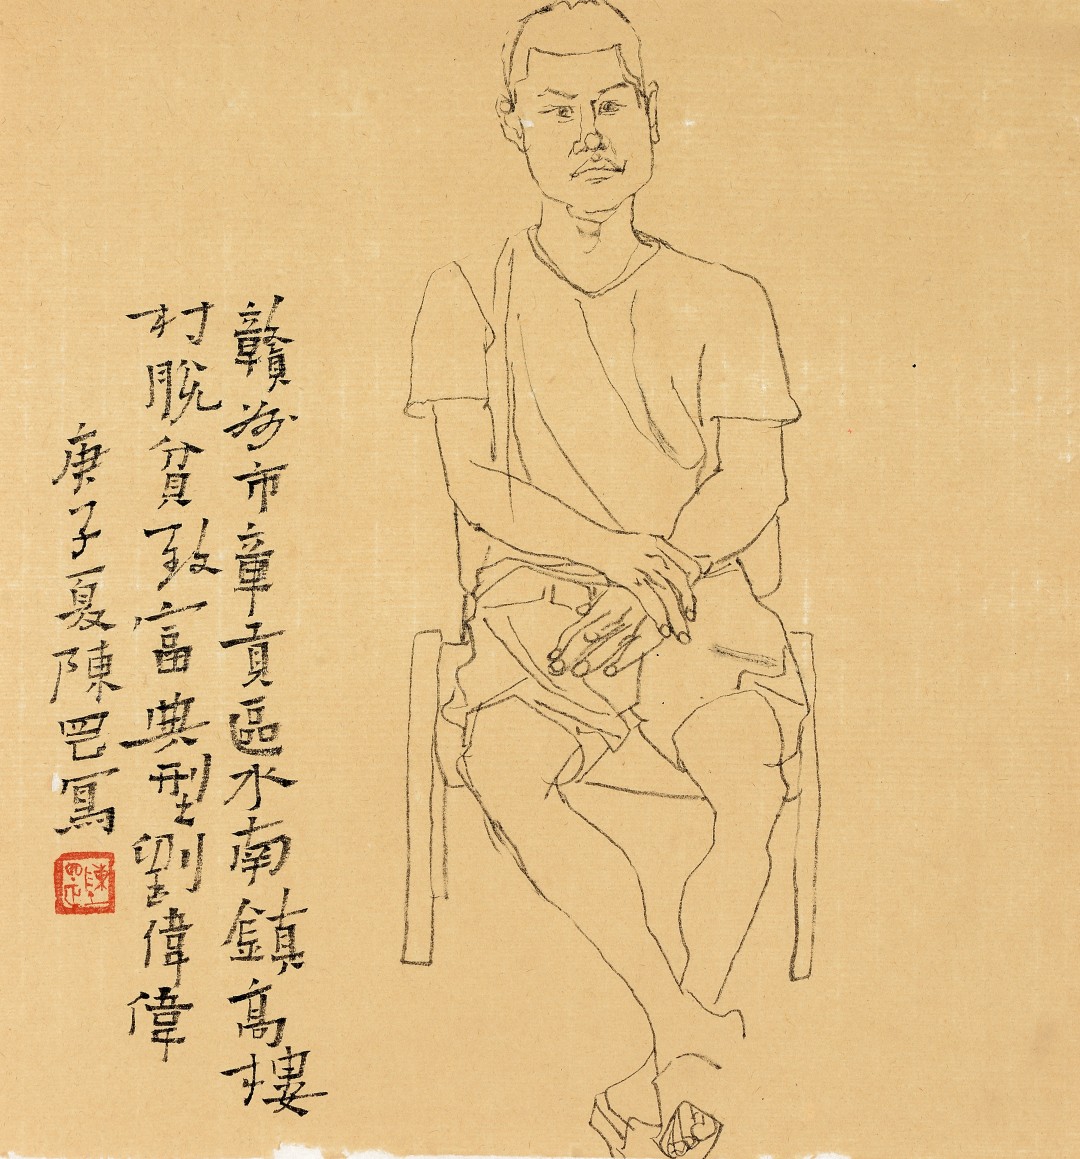 贛州市章貢區水南鎮高樓
村脫貧致富典型劉偉偉
庚子夏陳罒寫